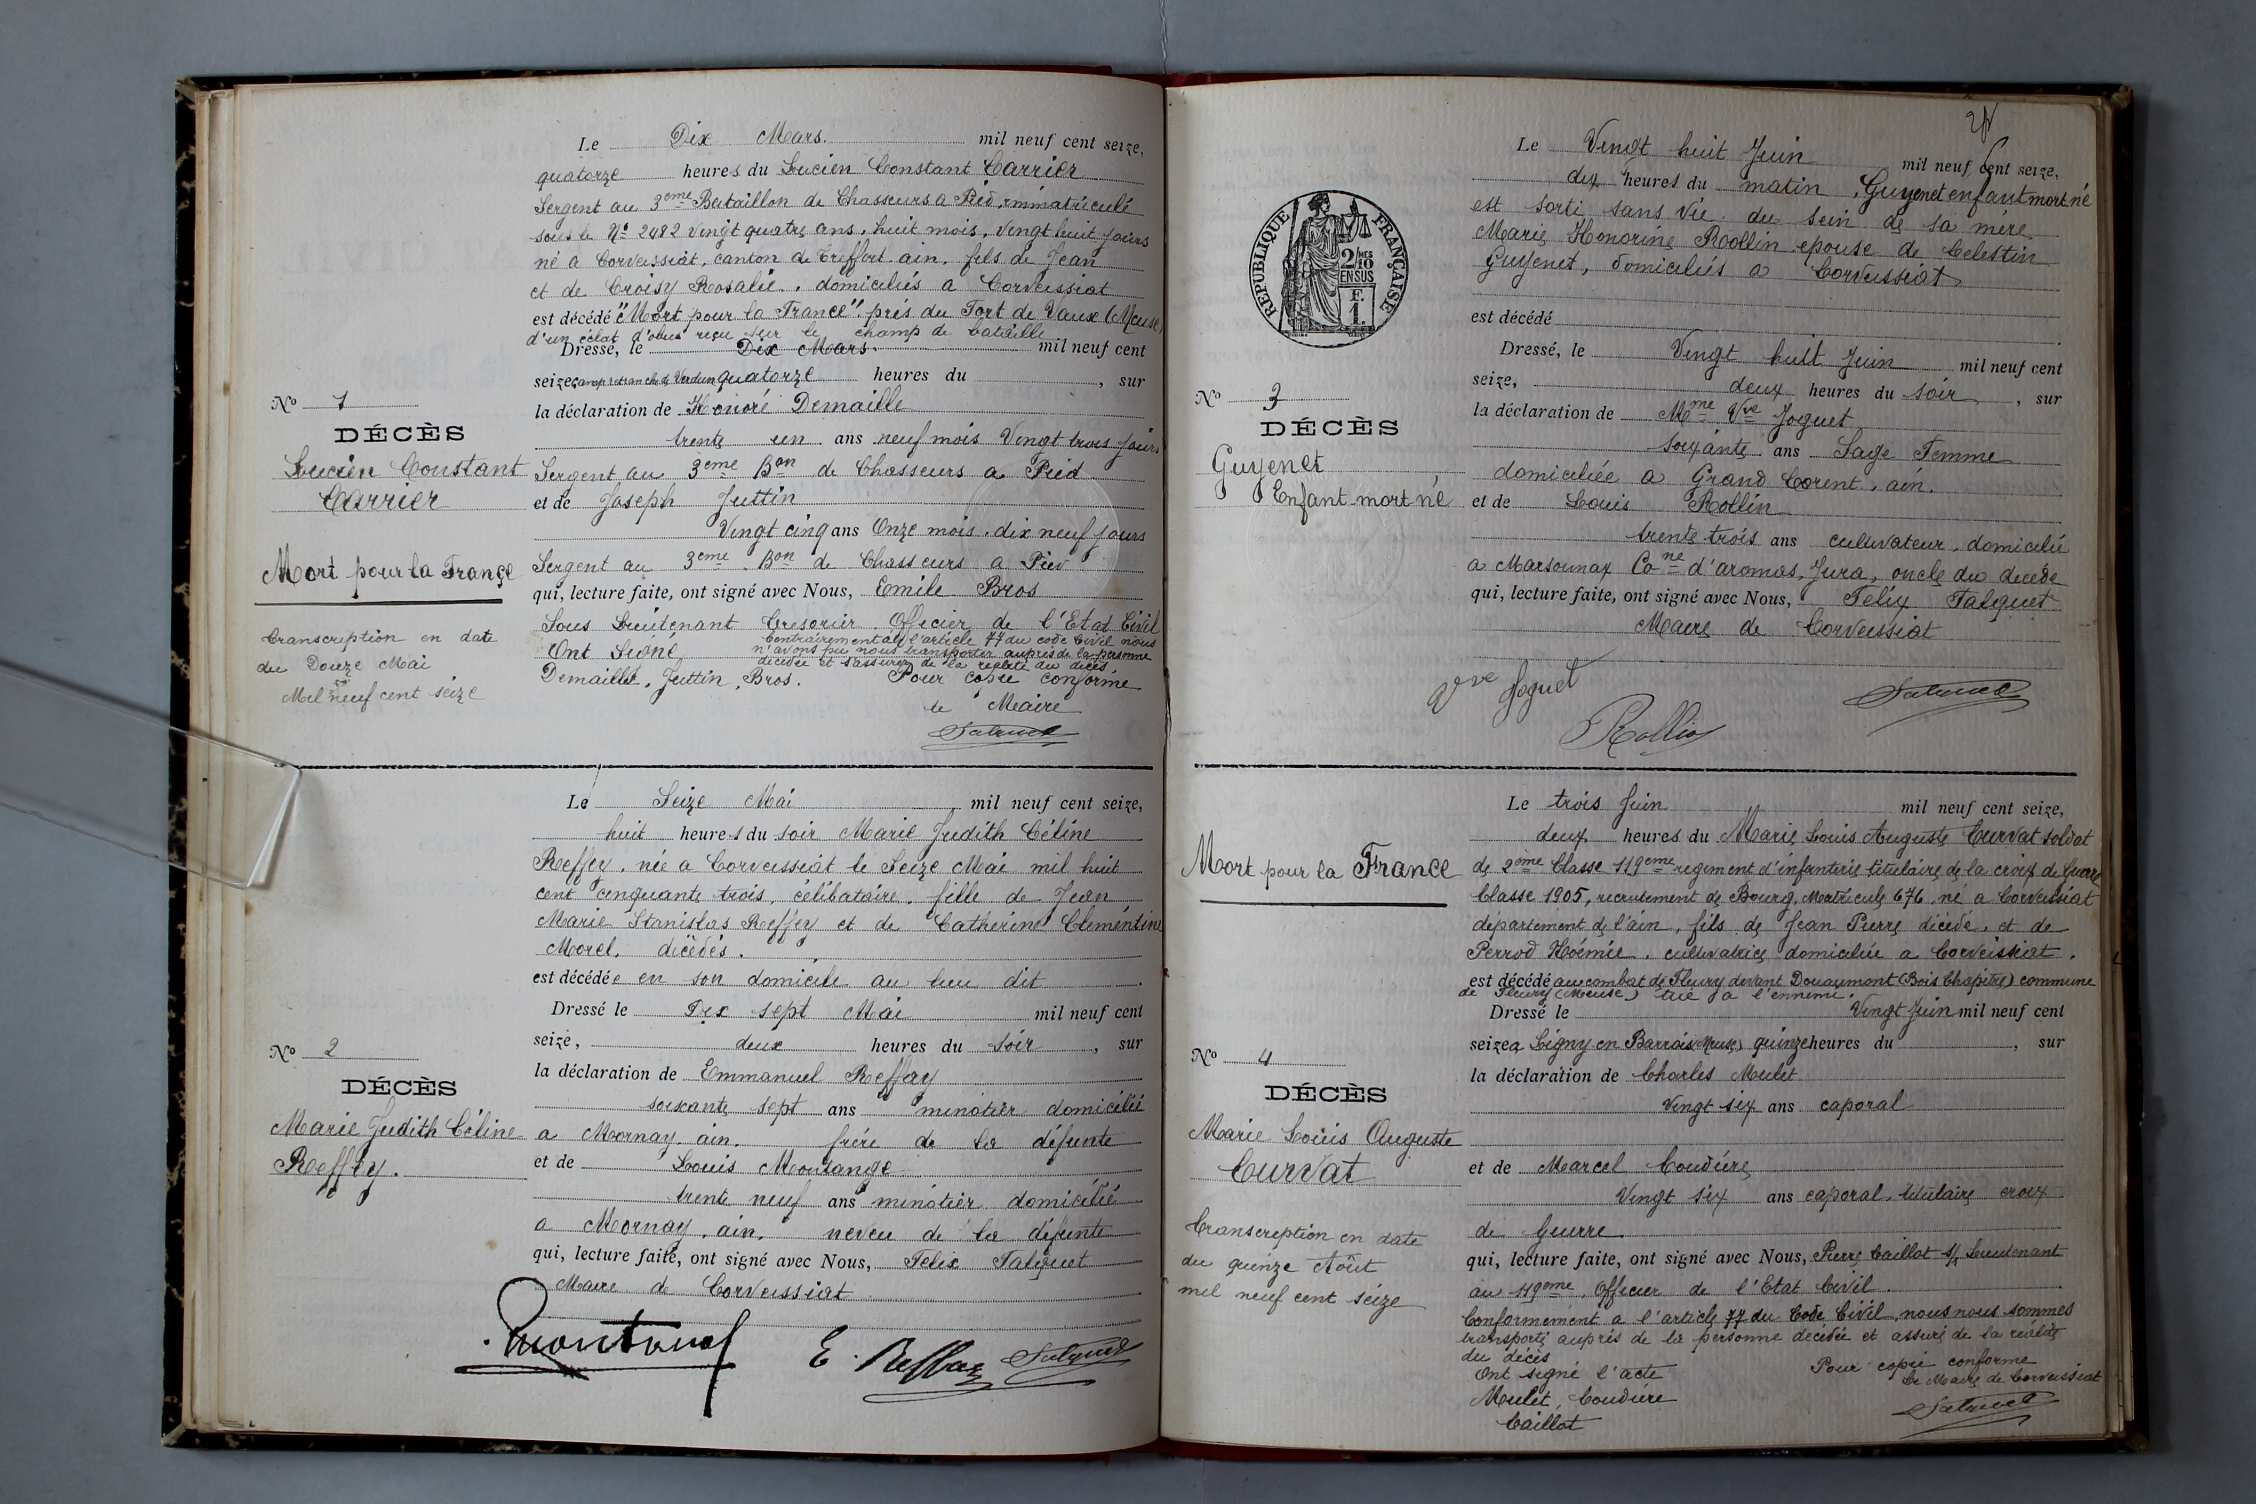 Le Dix Mars. mil neuf cent seize,
quatorze heures du Lucien Constant Carrier
Sergent au 3eme Bataillon de Chasseurs a Pied, immatriculé
sous le No 2482 vingt quatre ans, huit mois, vingt huit jours
né a Corveissiat, canton de Treffort. ain. fils de Jean
et de Croisy Rosalie. domiciliés a Corveissiat
est décédé "Mort pour la France". prés du Fort de Vaux (Meuse)
d'un éclat d'obus reçu sur le champ de bataille
Dressé, le Dix Mars. mil neuf cent
seize, camp retranché de Verdun quatorze heures du , sur
No 1
la déclaration de Honoré Demaille
DÉCÈS
trente un ans neuf mois Vingt trois jours
Lucien Constant
Sergent au 3eme Bon de Chasseurs a Pied
Carrier
et de Joseph Juttin
Vingt cinq ans Onze mois. dix neuf jours
Mort pour la France
Sergent au 3eme Bon de Chasseurs a Pied
qui, lecture faite, ont signé avec Nous, Emile Bros
Sous Lieutenant Trésorier. Officier de l'Etat Civil
Transcription en date
du Douze Mai
Mil neuf cent seize
Ont Signé
Contrairement à l'article 77 du code Civil nous
n'avons pu nous transporter auprès de la personne
décédée et s'assurer de la réalité du décès.
Demaille, Juttin, Bros. Pour copie conforme
le Maire
Falquet
Le Seize Mai mil neuf cent seize,
huit heures du soir Marie Judith Céline
Reffay, née a Corveissiat le Seize Mai mil huit
cent cinquante trois, célibataire. fille de Jean
Marie Stanislas Reffay et de Catherine Clémentine
Morel, décédés.
est décédée en son domicile au lieu dit .
Dressé le Dix sept Mai mil neuf cent
seize, deux heures du soir , sur
No 2
la déclaration de Emmanuel Reffay
DÉCÈS
soixante sept ans minotier domicilié
Marie Judith Céline
a Mornay. ain. frère de la défunte
Reffay.
et de Louis Montange
trente neuf ans minotier domicilié
a Mornay. ain. neveu de la défunte
qui, lecture faite, ont signé avec Nous, Felix Falquet
Maire de Corveissiat
E. Reffay Falquet
Le Vingt huit Juin mil neuf cent seize,
dix heures du matin, Guyenet enfant mort né
est sorti sans vie du sein de sa mère
Marie Honorine Rollin epouse de Celestin
Guyenet, domiciliés a Corveissiat
RÉPUBLIQUE FRANÇAISE
2/10MES
EN SUS
F.
1.
est décédé
Dressé, le Vingt huit Juin mil neuf cent
seize, deux heures du soir , sur
No 3
la déclaration de Mme Vve Joguet
DÉCÈS
soixante ans Sage Femme
Guyenet
domiciliée a Grand Corent, ain.
Enfant mort né
et de Louis Rollin
trente trois ans cultivateur, domicilié
a Marsonnax Cone d'aromas, Jura, oncle du decédé
qui, lecture faite, ont signé avec Nous, Felix Falquet
Maire de Corveissiat
Vve Joguet Falquet
Rollin
Le trois Juin mil neuf cent seize,
deux heures du Marie Louis Auguste Curvat soldat
Mort pour la France
de 2eme Classe 119eme regiment d'infanterie titulaire de la croix de Guerre
Classe 1905, recrutement de Bourg, Matricule 676, né a Corveissiat
département de l'ain, fils de Jean Pierre décédé, et de
Perrod Noémie. cultivatrice domiciliée a Corveissiat.
est décédé au combat de Fleury devant Douaumont (Bois Chapitre) commune
de Fleury (Meuse) tué a l'ennemi.
Dressé le Vingt Juin mil neuf cent
seize a Ligny en Barrois (Meuse) quinze heures du , sur
No 4
la déclaration de Charles Mulet
DÉCÈS
Vingt six ans caporal
Marie Louis Auguste
Curvat
et de Marcel Coudière
Vingt six ans caporal. titulaire croix
de Guerre
Transcription en date
du quinze Août
mil neuf cent seize
qui, lecture faite, ont signé avec Nous, Pierre Caillot S/s Lieutenant
au 119eme, Officier de l'Etat Civil.
Conformément a l'article 77 du Code Civil, nous nous sommes
transporté auprès de la personne décédée et assuré de la réalité
du décès
Ont signé l'acte Pour copie conforme
Le Maire de Corveissiat
Mulet, Coudière
Caillot Falquet